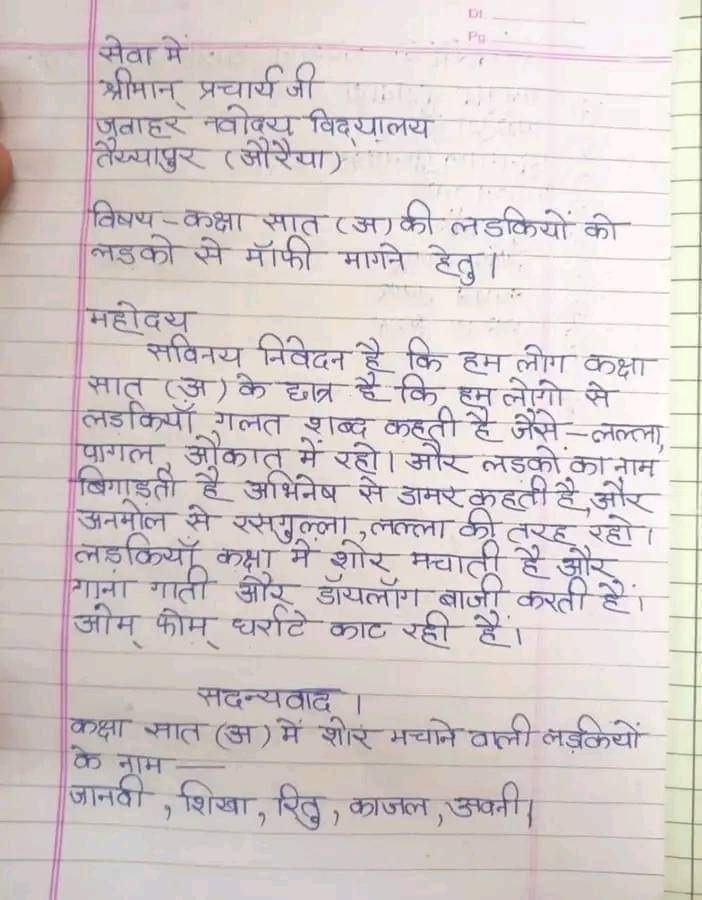 Dt.
Pg.
सेवा में
श्रीमान् प्रचार्य जी
जवाहर नवोदय विद्यालय
तैय्यापुर (औरैया)
विषय - कक्षा सात (अ) की लडकियों को
लड़को से मॉफी मागने हेतु।
महोदय
सविनय निवेदन है कि हम लोग कक्षा
सात (अ) के छात्र है कि हम लोगो से
लडकियाँ गलत शब्द कहती है जैसे - लल्ला,
पागल, औकात में रहो। और लडकों का नाम
बिगाड़ती है अभिनेष से डामर कहती है, और
अनमोल से रसगुल्ला, लल्ला की तरह रहो।
लड़कियाँ कक्षा मे शोर मचाती है और
गाना गाती और डॉयलॉग बाजी करती हैं।
ओम् फोम् धर्राटे काट रही हैं।
सदन्यवाद।
कक्षा सात (अ) में शोर मचाने वाली लड़कियों
के नाम —
जानवी, शिखा, रितु, काजल, अवनी।